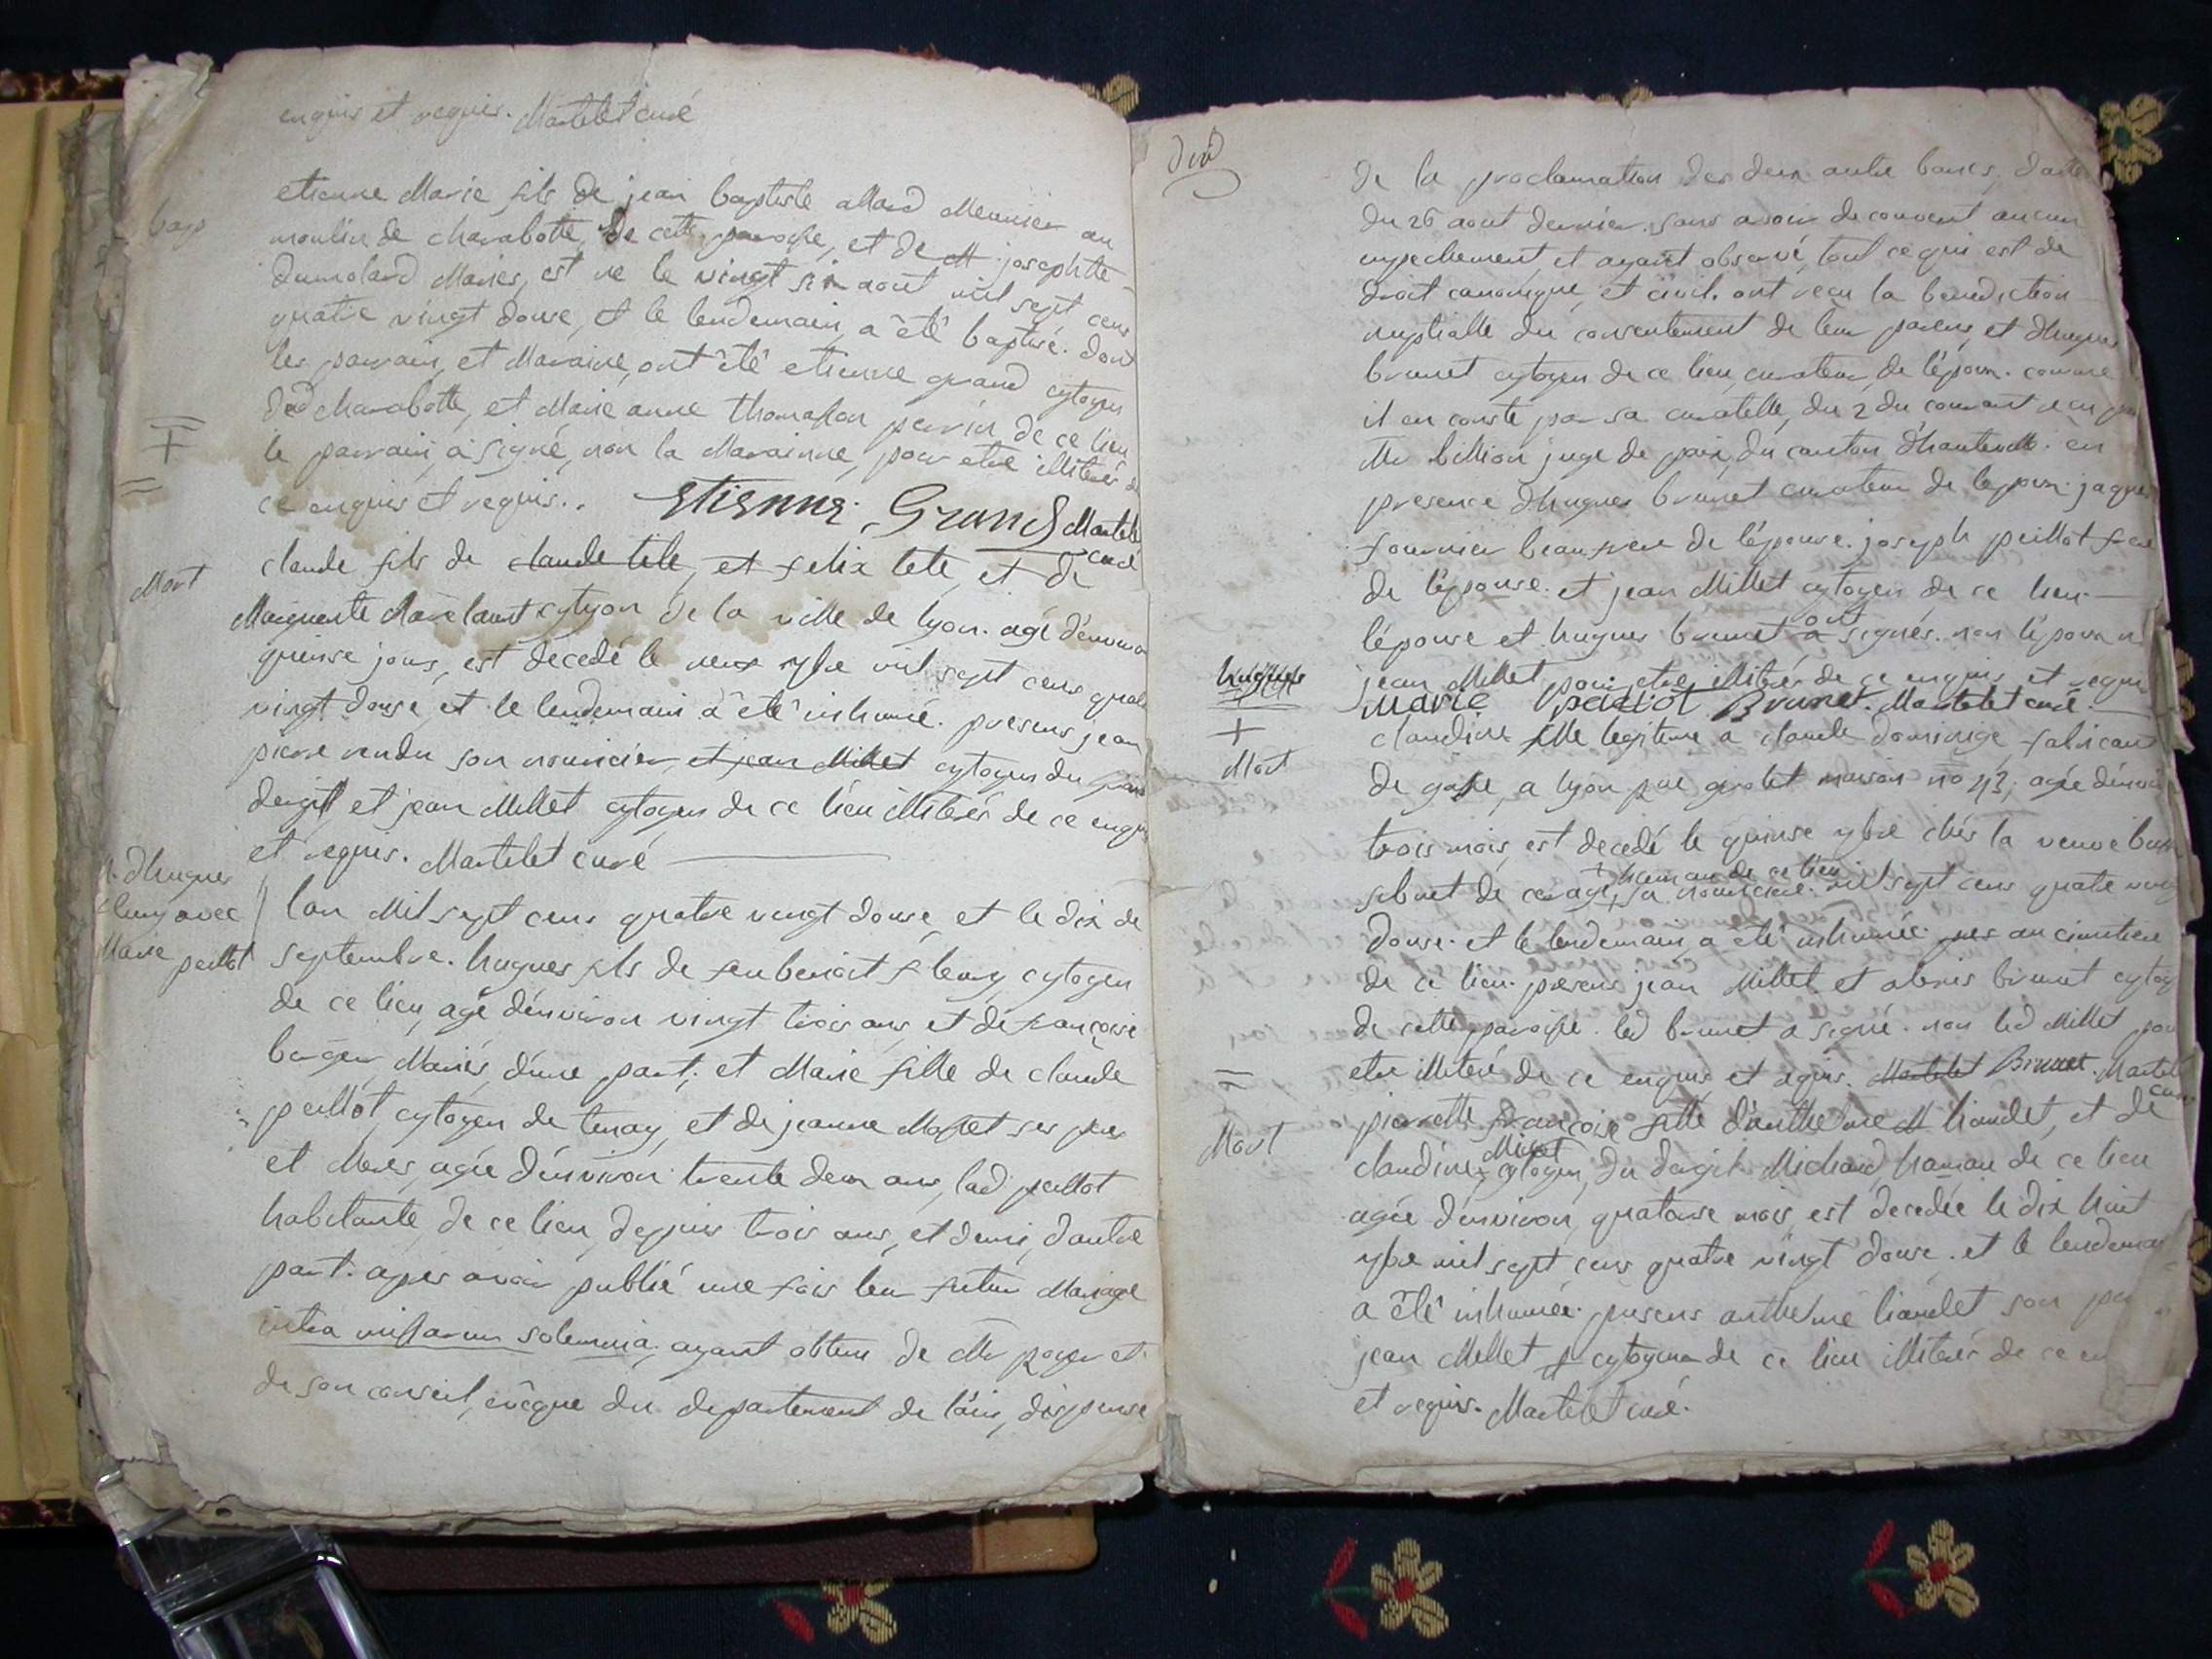 enquis et requis. Martelet curé
bap
etienne Marie fils de jean baptiste allard Meunier au
moulin de charabotte, de cette paroisse, et de M josephte
dumolard Mariés, est ne le vingt six aout mil sept cens
quatre vingt douse, et le lendemain, a été baptisé. dont
les parrain, et Maraine, ont été etienne grand cytoyen
dud charabotte, et Marie anne thomasson perrin de ce lieu
le parrain, a signé, non la Marainne, pour etre illiterés de
ce enquis et requis.. Etienne. Grand Martelet
curé
Mort
claude fils de claude tete, et felix tete, et de
Marguerite cytyon de la ville de lyon. agé d'environ
quinse jours, est decedé le 7bre mil sept cens quatre
vingt douse, et le lendemain a été inhumé. presens jean
pierre rendu son nouricier, et jean Millet cytoyen du
dergit et jean Millet cytoyen de ce lieu illiterés de ce enquis
et requis. Martelet curé
M. d'hugues
fleury avec
Marie peillot
l'an Mil sept cens quatre vingt douse, et le dix de
septembre. hugues fils de feu benoit fleury cytoyen
de ce lieu, agé d'environ vingt trois ans, et de francoise
berger Mariés, d'une part; et Marie fille de claude
peillot, cytoyen de tenay, et de jeanne Masset ses pere
et Meres, agée d'environ trente deux ans, lad peillot
habitante, de ce lieu, depuis trois ans, et demi, d'autre
part. apres avoir publié une fois leur futur Mariage
intra missarum solemnia. ayant obtenu de Mr royer et
de son conseil, evêque du departement de l'ain, dispense
de la proclamation des deux autre bancs, datée
du 26 aout dernier. sans avoir decouvert aucun
empechement, et ayant observé, tout ce qui est de
droit canonique, et civil. ont reçu la benediction
nuptialle du consentement de leur parens, et d'hugues
brunet cytoyen de ce lieu, curateur, de l'epoux. comme
il en conste par sa curatelle, du 2 du courant recu par
Mr billion juge de paix, du canton d'hauteville. en
presence d'hugues brunet curateur de lepoux. jaques
fournier beaufrere de l'épouse. joseph peillot frere
de l'épouse. et jean Millet cytoyen de ce lieu.
ont
lépouse et hugues brunet a signés. non lépoux ni
hugues
jean Millet pour etre illiterés de ce enquis et requis
Marie peillot Brunet. Martelet curé.
claudine fille legitime a claude dominige, fabricant
Mort
de gase, a lyon rue grolet maison no 43; agée d'environ
trois mois, est decedé le quinse 7bre chés la veuve
+ hamau de ce lieu
sibuet de sa nouriciere. mil sept cens quatre vingt
douse. et le lendemain a été inhumée au cimetiere
de ce lieu. presens jean Millet et brunet cytoyen
de cette paroisse. led brunet a signé. non led Millet pour
etre illiteré de ce enquis et requis. Martelet Brunet. Martelet
curé
Mort
pierrette francoise fille d'anthelme M liaudet, et de
Micol
claudine, cytoyen, du dergit Michaud, hamau de ce lieu
agée d'environ, quatorse mois, est decedée le dix huit
7bre mil sept cens quatre vingt douse. et le lendemain
a été inhumée. presens anthelme liaudet son pere
jean Millet cytoyens de ce lieu illiterés de ce en
et requis. Martelet curé.